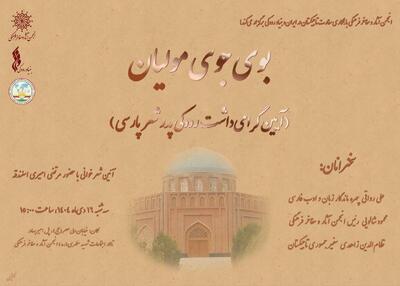 انجمن آثار و مفاخر فرهنگی با همکاری سفارت تاجیکستان در ایران و بنیاد رودکی برگزار می‌کند:
بوی جوی مولیان
(آیین گرامی‌داشت رودکی پدر شعر پارسی)
سخنرانان:
علی رواقی چهره ماندگار زبان و ادب فارسی
محمود شالویی رئیس انجمن آثار و مفاخر فرهنگی
نظام الدین زاهدی سفیر جمهوری تاجیکستان
آئین شعرخوانی با حضور مرتضی امیری اسفندقه
سه شنبه ۱۶ دی ماه ۱۴۰۴، ساعت ۱۵:۰۰